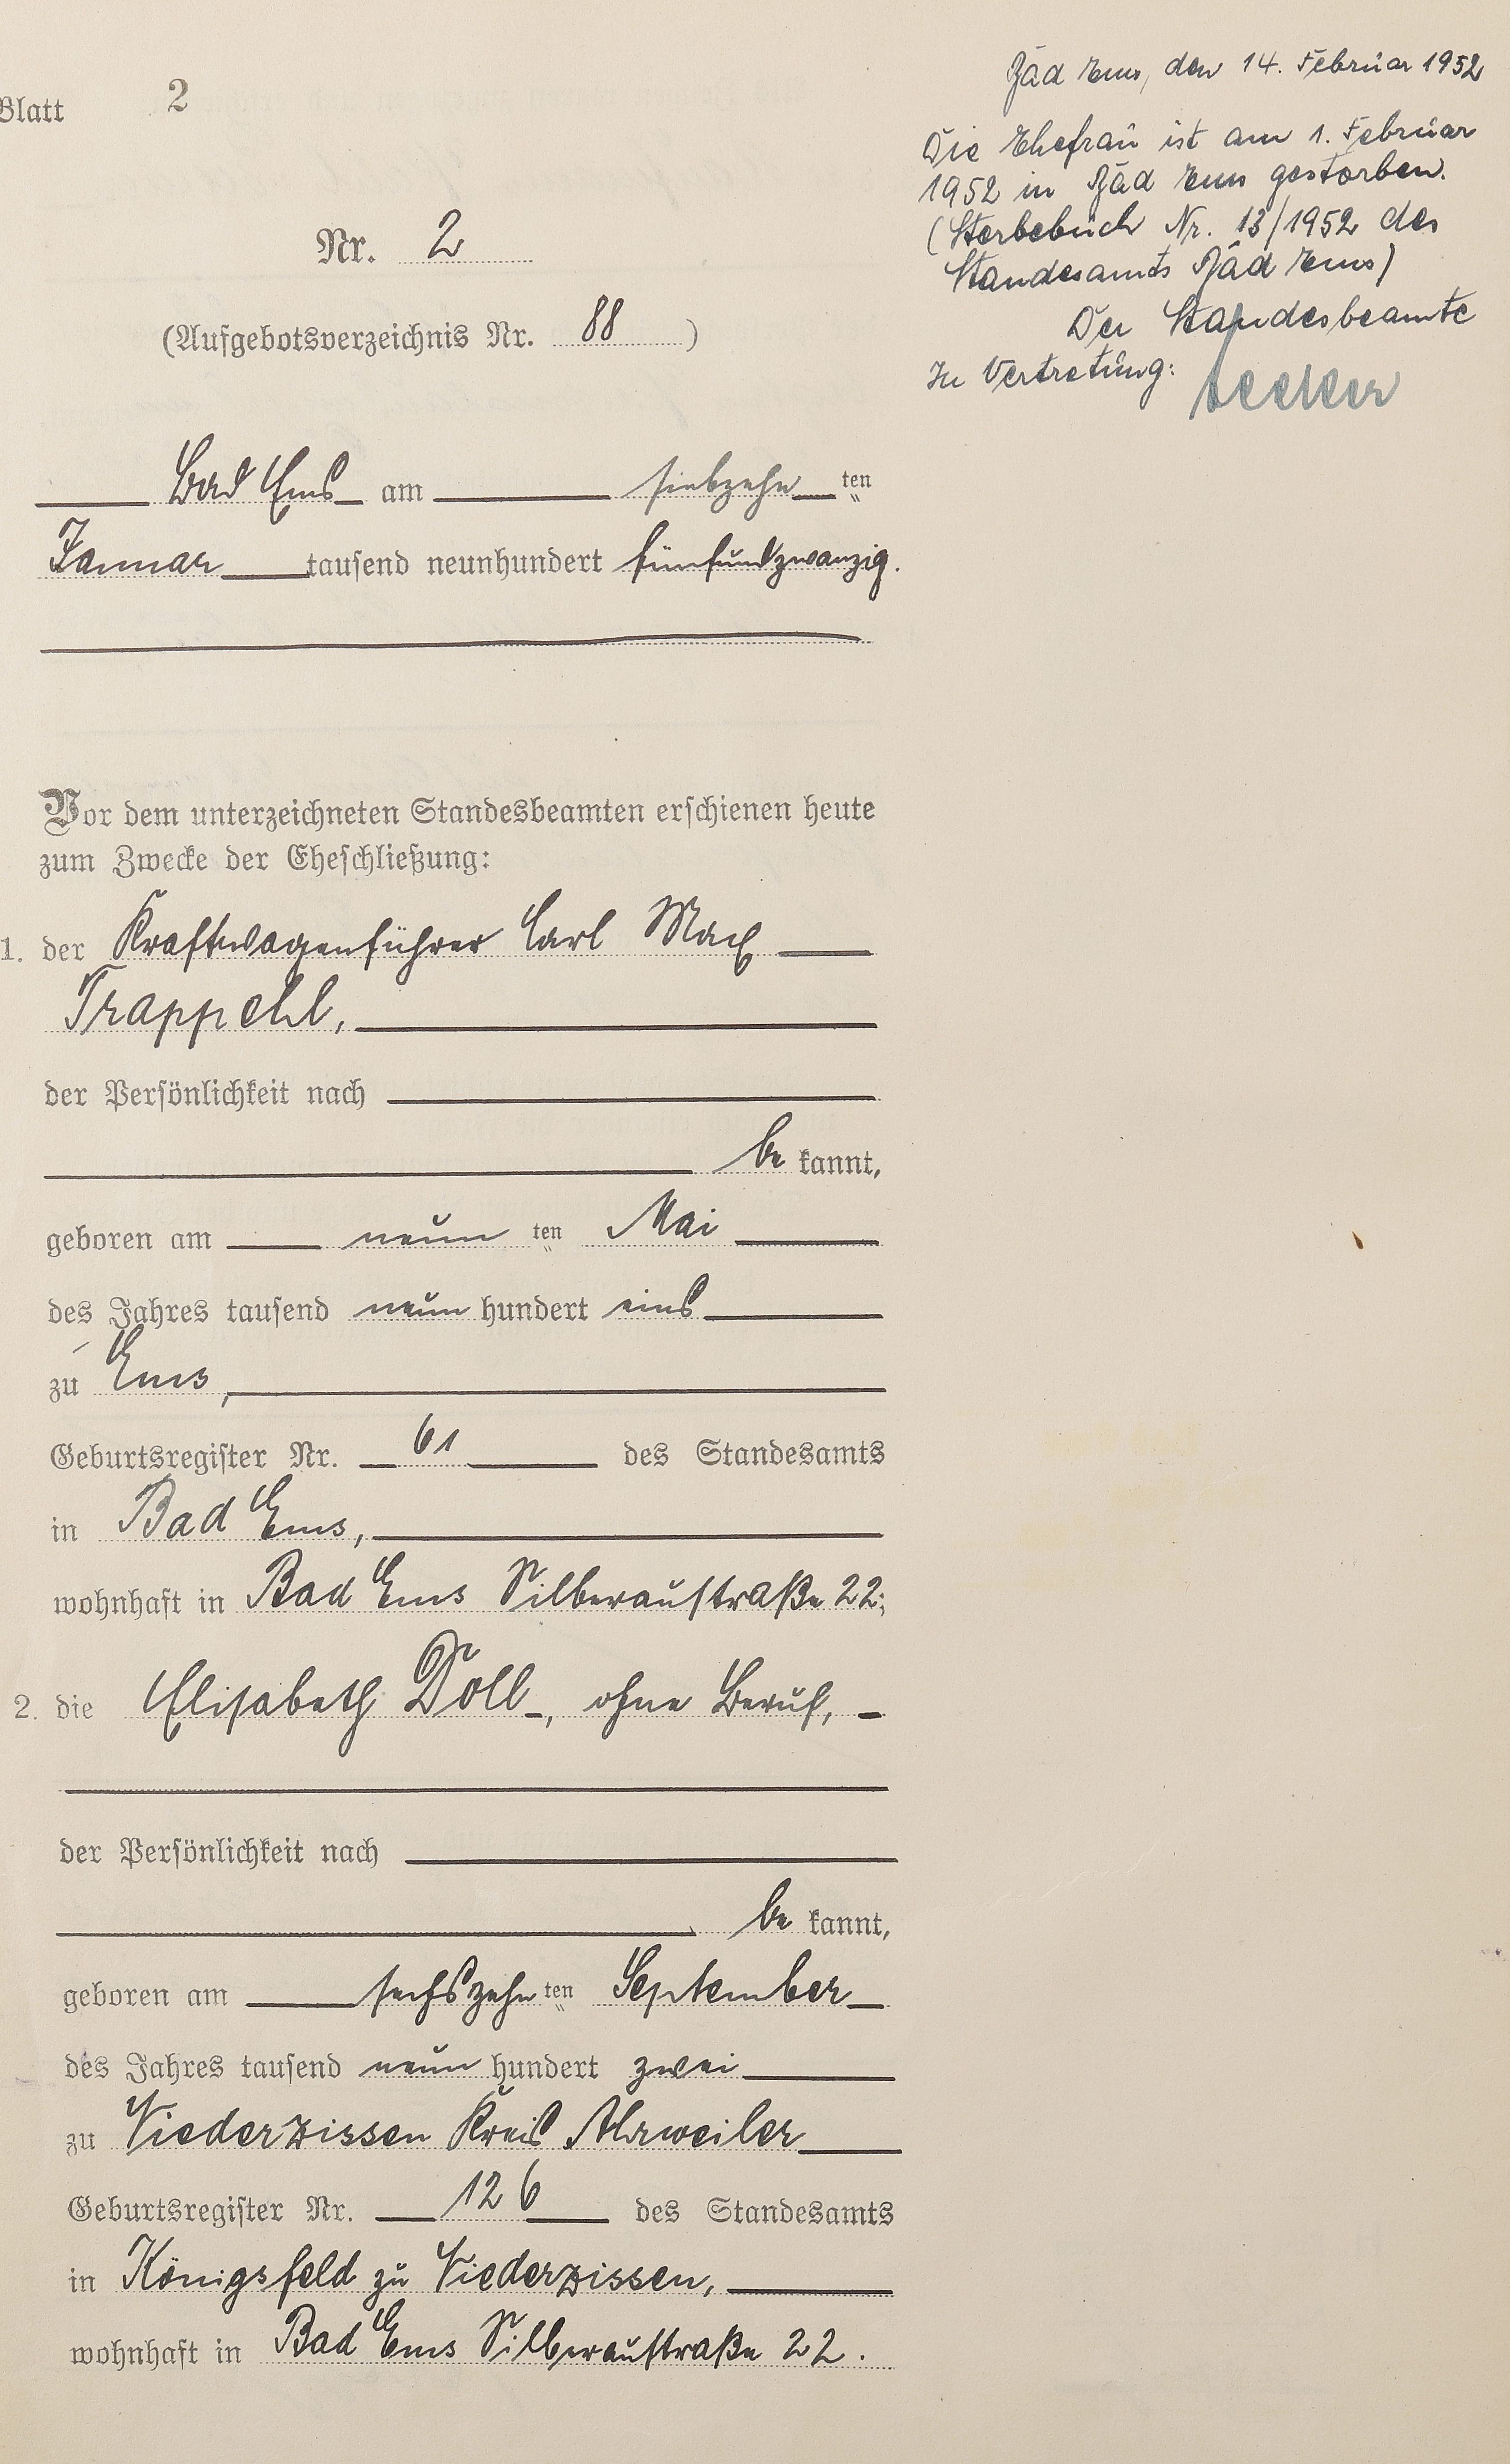 Blatt 2
Nr. 2
(Aufgebotsverzeichnis Nr. 88)
Bad Ems am siebzehnten
Januar tausend neunhundert fünfundzwanzig.
Vor dem unterzeichneten Standesbeamten erschienen heute
zum Zwecke der Eheschließung:
1. der Kraftwagenführer Carl Max
Trappehl,
der Persönlichkeit nach
bekannt,
geboren am neunten Mai
des Jahres tausend neunhundert eins
zu Ems,
Geburtsregister Nr. 61 des Standesamts
in Bad Ems,
wohnhaft in Bad Ems Silberaustraße 22;
2. die Elisabeth Doll, ohne Beruf,
der Persönlichkeit nach
bekannt,
geboren am sechszehnten September
des Jahres tausend neunhundert zwei
zu Niederzissen Kreis Ahrweiler
Geburtsregister Nr. 126 des Standesamts
in Königsfeld zu Niederzissen,
wohnhaft in Bad Ems Silberaustraße 22.
Bad Ems, den 14. Februar 1952
Die Ehefrau ist am 1. Februar
1952 in Bad Ems gestorben.
(Sterbebuch Nr. 13/1952 des
Standesamts Bad Ems)
Der Standesbeamte
In Vertretung: